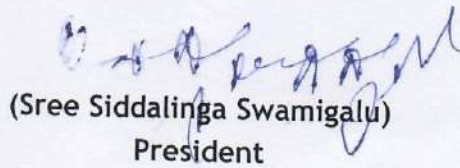 (Sree Siddalinga Swamigalu)
President